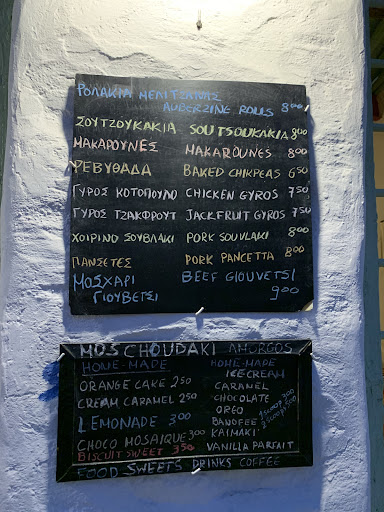 ΡΟΛΑΚΙΑ ΜΕΛΙΤΖΑΝΑΣ
AUBERZINE ROLLS 800
ΣΟΥΤΖΟΥΚΑΚΙΑ SOUTSOUKAKIA 800
ΜΑΚΑΡΟΥΝΕΣ MAKAROUNES 800
ΡΕΒΥΘΑΔΑ BAKED CHIKPEAS 650
ΓΥΡΟΣ ΚΟΤΟΠΟΥΛΟ CHICKEN GYROS 750
ΓΥΡΟΣ ΤΖΑΚΦΡΟΥΤ JACKFRUIT GYROS 750
ΧΟΙΡΙΝΟ ΣΟΥΒΛΑΚΙ PORK SOUVLAKI 800
ΠΑΝΣΕΤΕΣ PORK PANCETTA 800
ΜΟΣΧΑΡΙ BEEF GIOUVETSI
ΓΙΟΥΒΕΤΣΙ 900
MOSCHOUDAKI AMORGOS
HOME-MADE
ORANGE CAKE 250
CREAM CARAMEL 250
LEMONADE 300
CHOCO MOSAIQUE 300
BISCUIT SWEET 350
HOME-MADE
ICECREAM
CARAMEL
CHOCOLATE
OREO
BANOFEE
KAIMAKI
VANILLA PARFAIT
1 SCOOP 300
2 SCOOPS 500
FOOD SWEETS DRINKS COFFEE